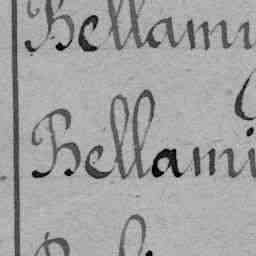 Bellami
Bellami